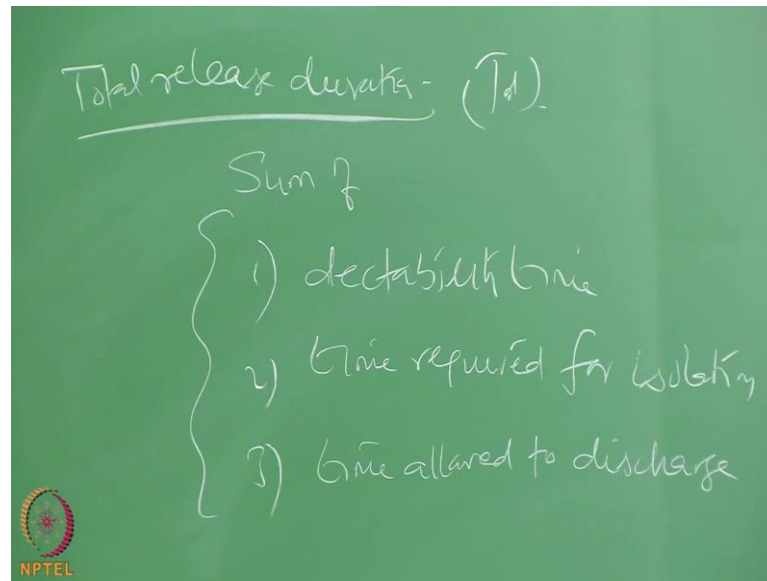 Total release duration - (Td).
Sum of
1) dectability time
2) time required for isolation
3) time allowed to discharge
NPTEL